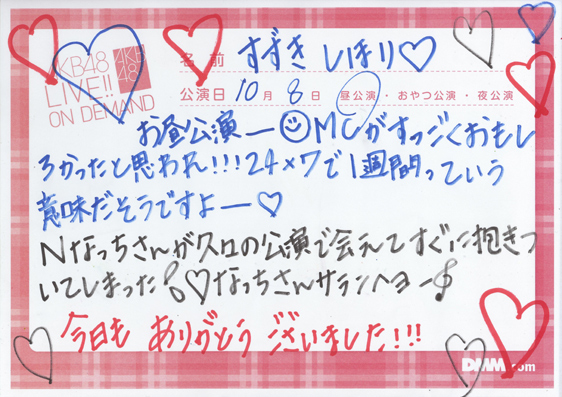 AKB48
LIVE!!
ON DEMAND
AKB
48
名 前 すずき しほり♡
公演日 10 月 8 日 昼公演・おやつ公演・夜公演
お昼公演ー☺MCがすっごくおもし
ろかったと思われ!!!24×7で1週間っていう
意味だそうですよー♡
Nなっちさんが久々の公演で会えてすぐに抱きつ
いてしまった♡なっちさんサランヘヨー
今日も ありがとう ございました!!!
DMM.com